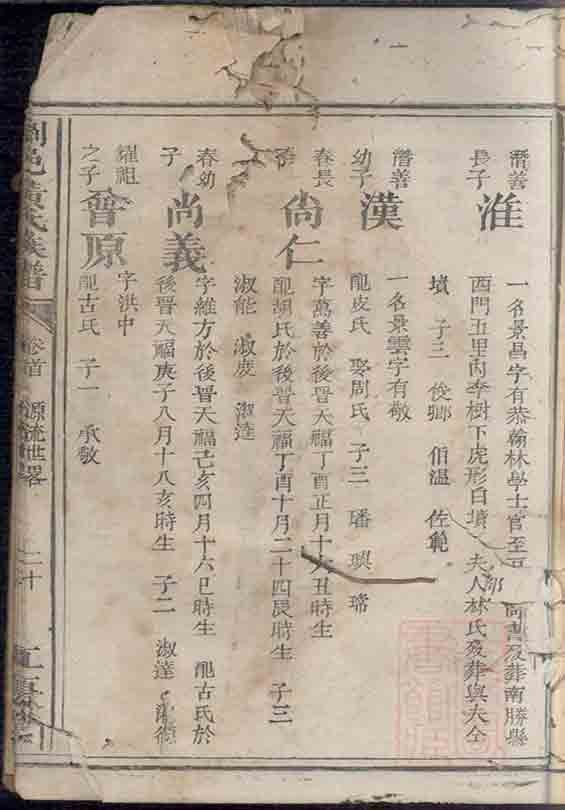 潛善
長子
淮
一名景昌字有恭翰林學士官至 尚書歿葬南勝縣
西門五里內李樹下虎形白墳 夫人林氏歿葬與夫仝
墳 子三 俊卿 伯溫 佐範
潛善
幼子
漢
一名景雲字有敬
配皮氏 娶周氏 子三 璠 璵 瑺
春長
尚仁
字萬善於後晉天福丁酉正月十 丑時生
配胡氏於後晉天福丁酉十月二十四艮時生 子三
淑能 淑慶 淑達
春幼
子
尚義
字維方於後晉天福己亥四月十六巳時生 配古氏於
後晉天福庚子八月十八亥時生 子二 淑達
繼祖
之子
會原
字洪中
配古氏 子一 承敬
邑黃氏族譜
卷首 源流世畧
二十
江夏堂